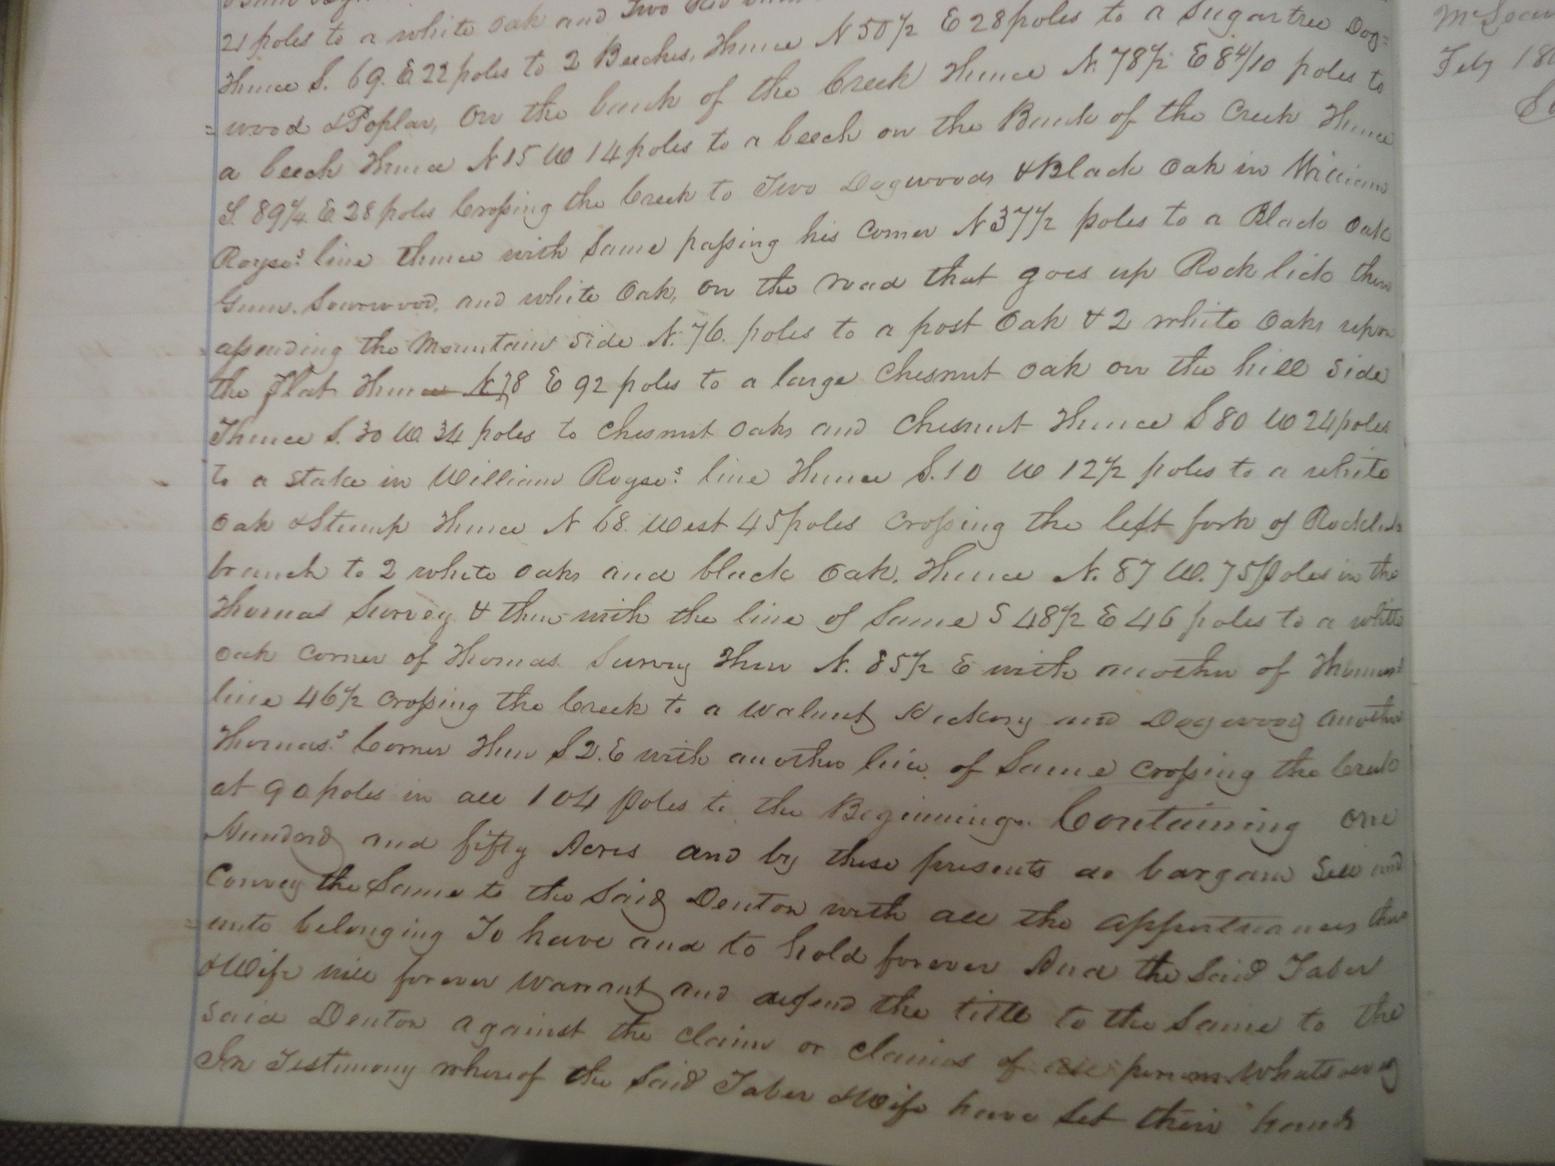 21 poles to a white oak and Two
Thence S. 69. E 22 poles to 2 Beeches, Thence N 50½ E 28 poles to a Sugartree Dog=
=wood & Poplar, On the bank of the Creek Thence N. 78½ E 8 4/10 poles to
a beech Thence N 15 W 14 poles to a beech on the Bank of the Creek Thence
S. 89¼ E 28 poles Crossing the Creek to Two Dogwoods & Black Oak in William
Royses line thence with Same passing his Corner N 37½ poles to a Black Oak
Gum. Sourwood, and white Oak, on the road that goes up Rock lick then
assending the Mountain Side N. 76. poles to a post Oak & 2 white Oaks upon
the flat Thence N 78 E 92 poles to a large Chesnut Oak on the hill Side
Thence S. 30 W 34 poles to Chesnut Oaks and Chesnut Thence S 80 W 24 poles
to a Stake in William Royses line Thence S. 10 W 12½ poles to a white
Oak & Stump Thence N 68. West 45 poles Crossing the left fork of Rocklick
branch to 2 white Oaks and black Oak. Thence N. 87 W. 75 Poles in the
Thomas Survey & then with the line of Same S 48½ E 46 poles to a white
Oak Corner of Thomas Survey Then N. 85½ E with another of Thomas's
line 46½ Crossing the Creek to a Walnut Hickory and Dogwood another
Thomas's Corner Then S 2. E with another line of Same Crossing the Creek
at 90 poles in all 104 Poles to the Beginning. Containing one
Hundred and fifty Acres and by these presents do bargain Sell and
Convey the Same to the Said Denton with all the appurtenances there
=unto belonging To have and to hold forever And the Said Taber
& Wife will forever Warrant and defend the title to the Same to the
Said Denton against the Claim or Claims of all persons Whatsoever
In Testimony whereof the Said Taber & Wife have Set their hands
Feby